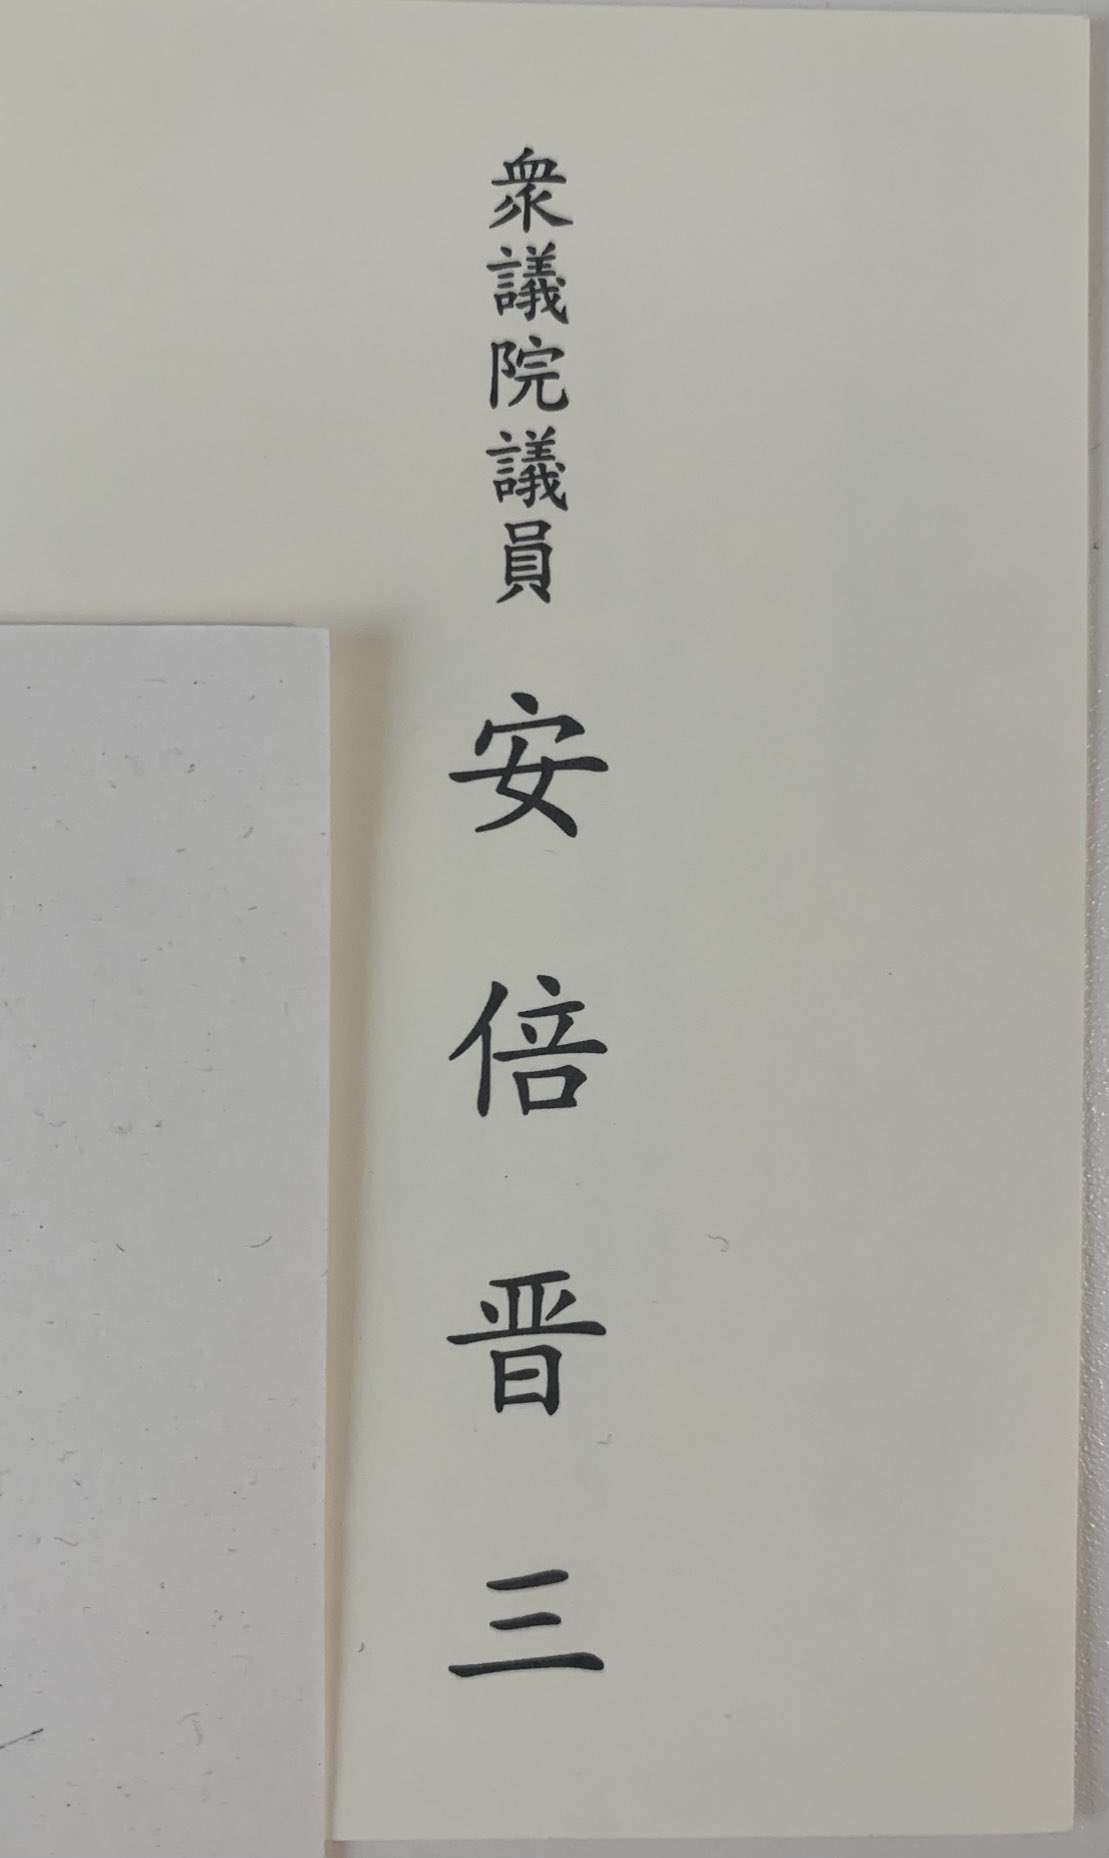 衆議院議員 安倍晋三